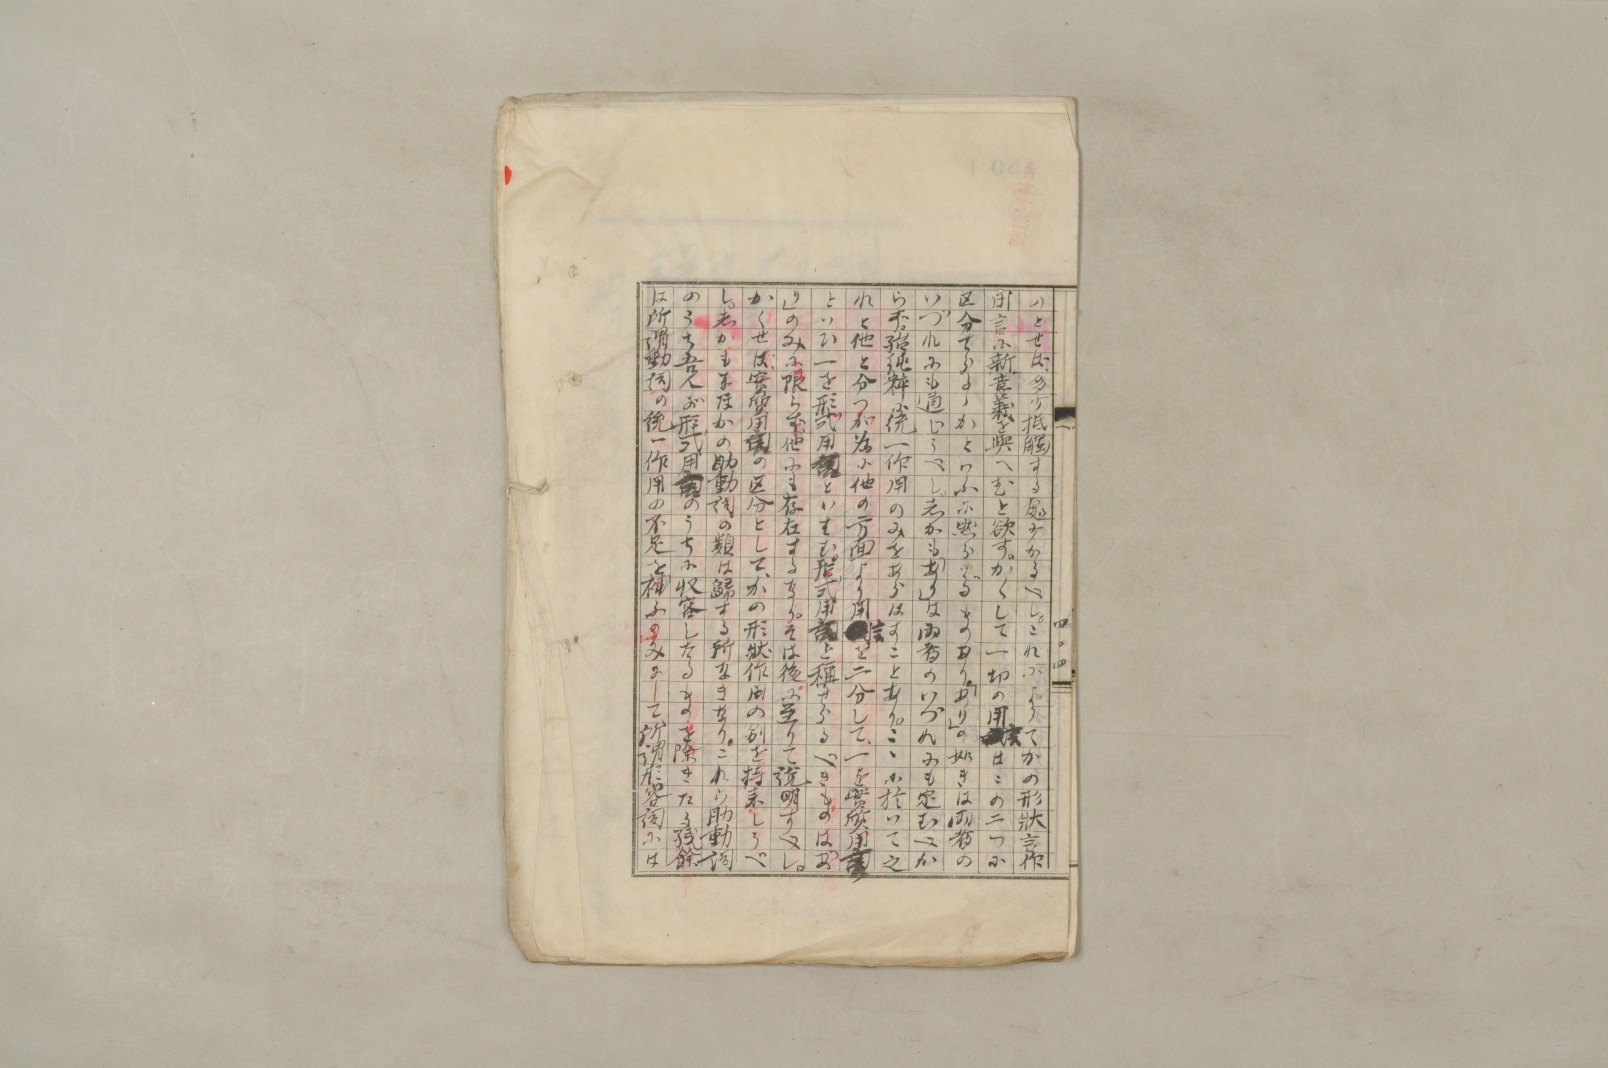 いとせば、必ず抵觸する處多かるべし。これによりてかの形狀言作
用言に新意義を與へむと欲す。かくして一切の用言はこの二つに
区分せらるゝかといふに然らざるものあり。「あり」の如きは両者の
いづれにも通じうべし。しかも「あり」は両者のいづれにも定むべか
らず。殆純粹に統一作用のみをあらはすことあり。こゝに於いて之
れと他と分つが為に他の一方面より用言を二分して、一を實質用言
といひ一を形式用言といはむ。形式用言と称せらるべきものは「あ
り」のみに限らず、他にも存在するなり。そは後に至りて説明すべし。
かくせば實質用言の区分として、かの形狀作用の別を持来しうべ
し。しかもまたかの助動詞の類は歸する所なきなり。これら助動詞
のうち吾人が形式用言のうちに収容したるものを除きたる残餘
は所謂動詞の統一作用の不足を補ふのみにして所謂形容詞には
四〇四